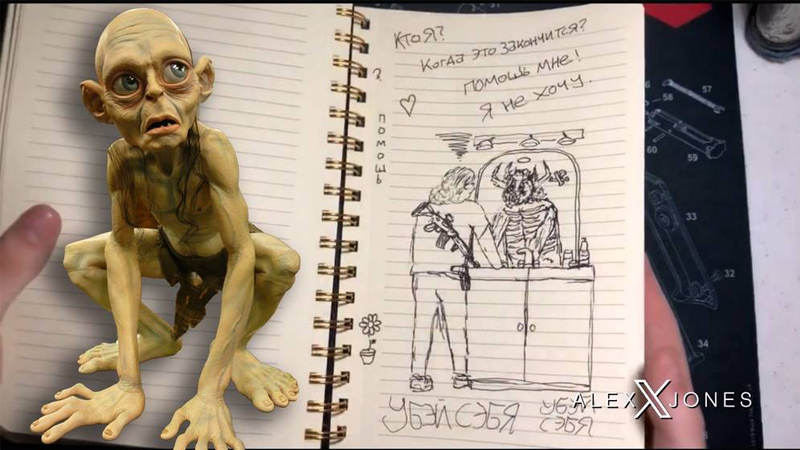 Кто я?
Когда это закончится?
помощь мне!
Я не хочу.
?
помощь
УБЭЙ СЭБЯ
УБЭЙ
СЭБЯ
57
58
60
59
33
32
34
ALEX X JONES